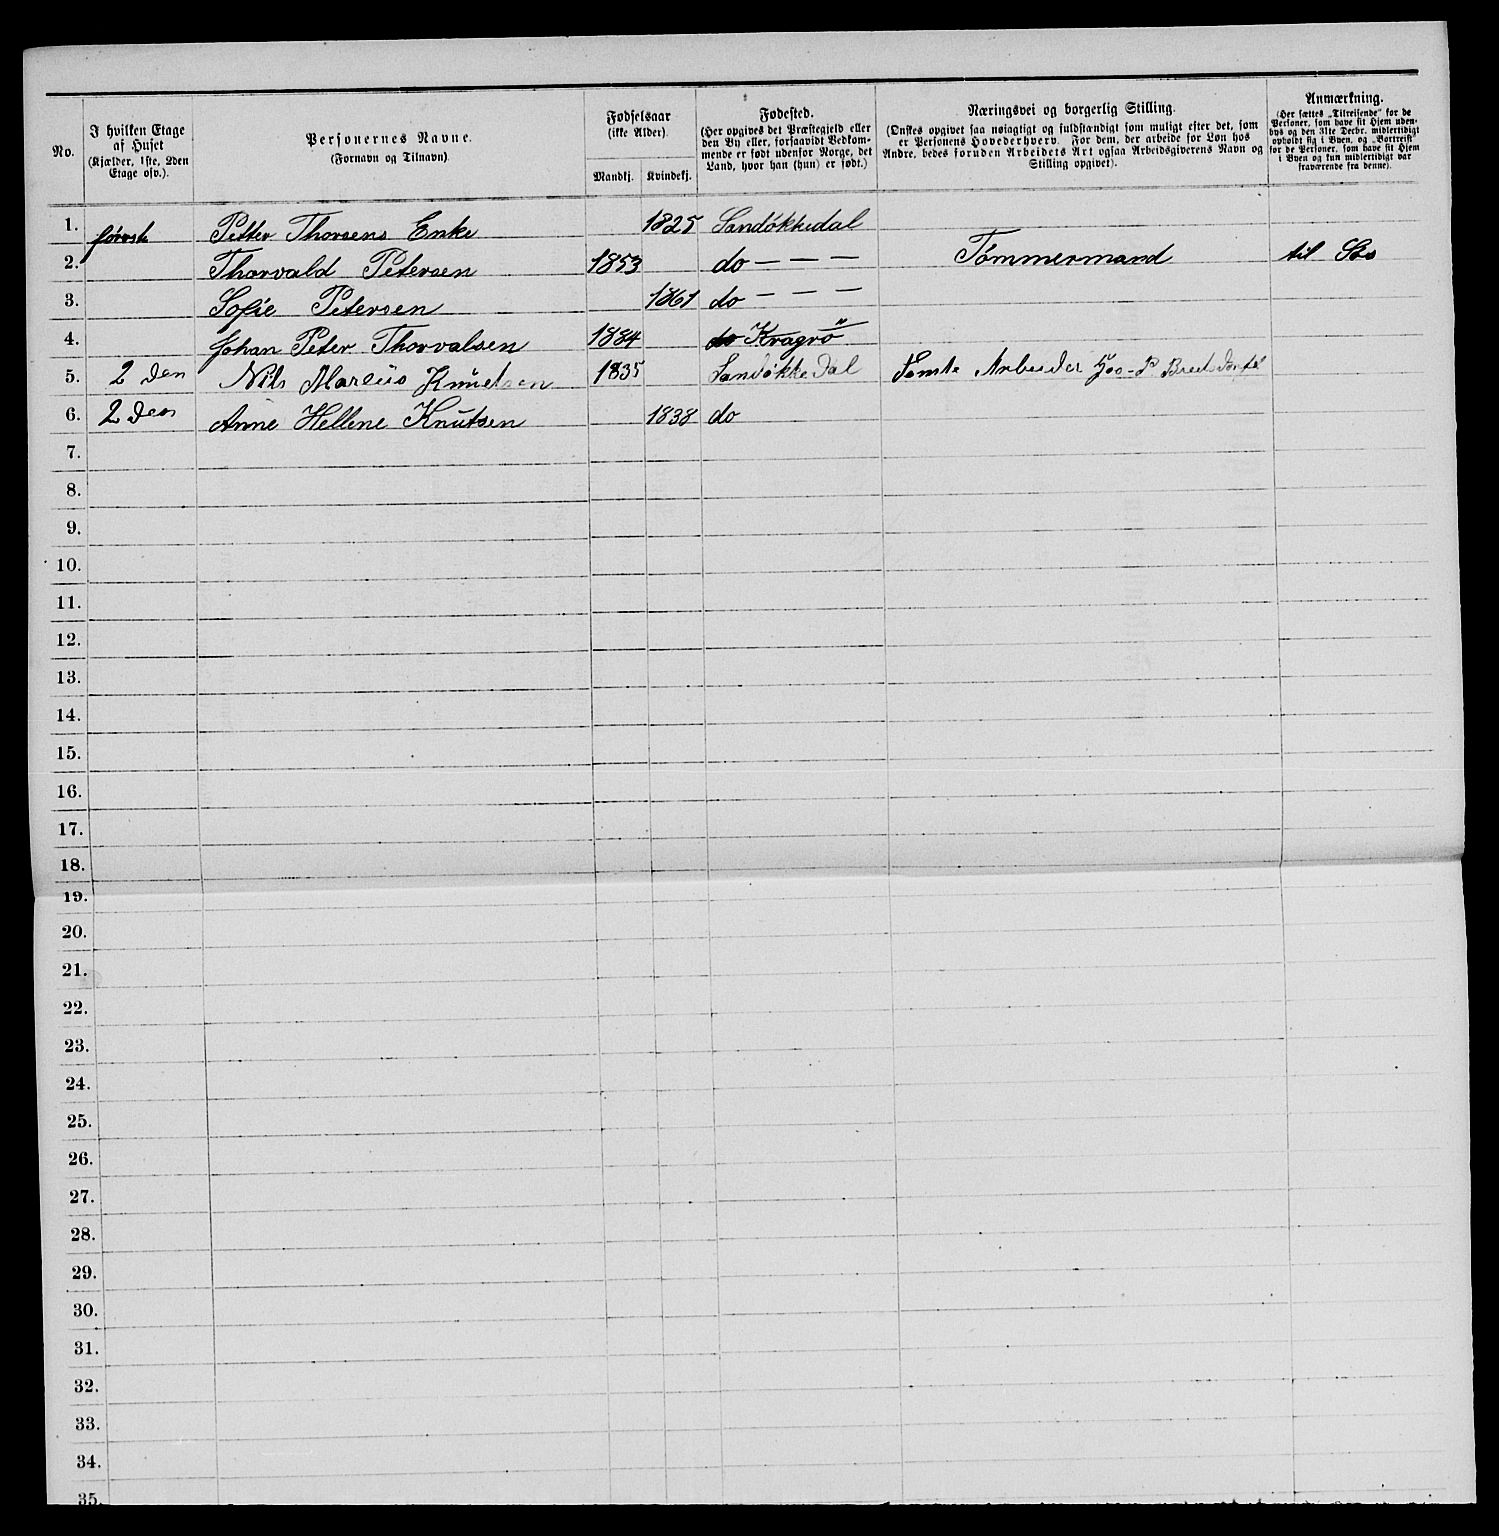 No.
I hvilken Etage
af Huset
(Kjælder, 1ste, 2den
Etage osv.).
Personernes Navne.
(Fornavn og Tilnavn).
Fødselsaar
(ikke Alder).
Mandkj.
Kvindekj.
Fødested.
(Her opgives det Præstegjeld eller
den By eller, forsaavidt Vedkom-
mende er født udenfor Norge, det
Land, hvor han (hun) er født.)
Næringsvei og borgerlig Stilling.
(Ønskes opgivet saa nøiagtigt og fuldstændigt som muligt efter det, som
er Personens Hovederhverv. For dem, der arbeide for Løn hos
Andre, bedes foruden Arbeidets Art ogsaa Arbeidsgiverens Navn og
Stilling opgivet).
Anmærkning.
(Her sættes „Tilreisende“ for de
Personer, som have sit Hjem uden-
bys og den 31te Decbr. midlertidigt
opholdt sig i Byen, og „Bortreist“
for de Personer, som have sit Hjem
i Byen og kun midlertidigt var
fraværende fra denne).
1. første Petter Thorsens Enke 1825 Sandøkkedal
2. Thorvald Petersen 1853 do — — — Tømmermand til Søs
3. Sofie Petersen 1861 do — — —
4. Johan Peter Thorvalsen 1884 do Kragrø
5. 2 den Nils Marcus Knudsen 1835 Sandøkkedal Tomte Arbeider Hos P
6. 2 den Anne Hellene Knutsen 1838 do
7.
8.
9.
10.
11.
12.
13.
14.
15.
16.
17.
18.
19.
20.
21.
22.
23.
24.
25.
26.
27.
28.
29.
30.
31.
32.
33.
34.
35.